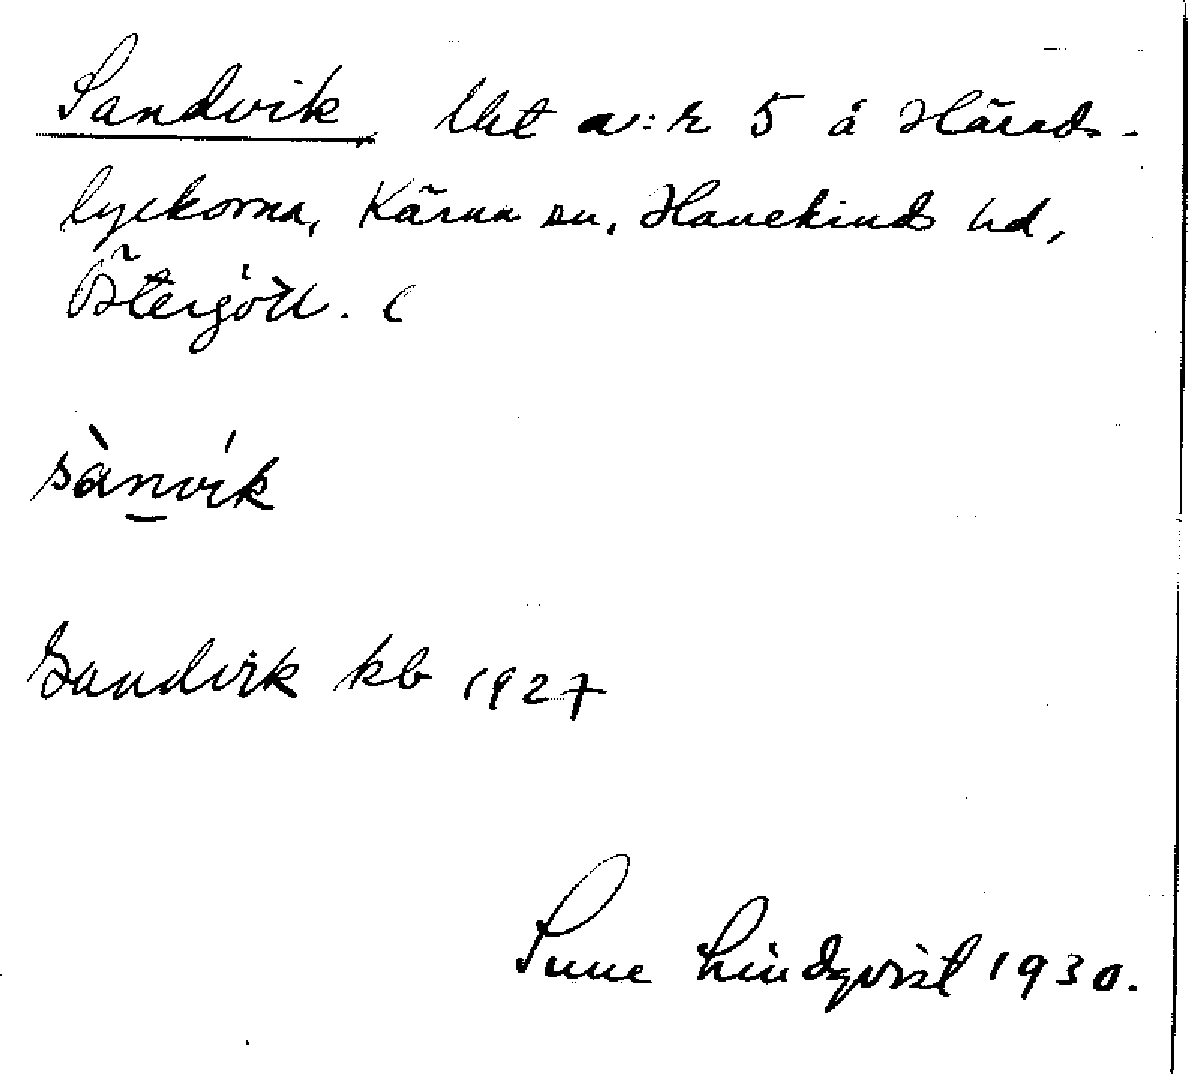 Sandvik Lht n:r 5 å Härads-
lyckorna, Kärna sn, Hanekinds hd,
Östergötl. (
sànvík
Sandvik kb 1927
Sune Lindqvist 1930.